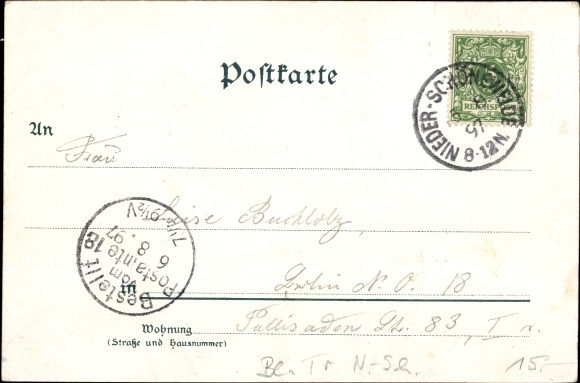 Postkarte
5
REICHSPOST
NIEDER-SCHÖNEWEIDE
97
8-12 N.
An
Frau
Luise Buchholz,
in Berlin N. O. 18
Pallisaden Str. 83, I r.
Wohnung
(Straße und Hausnummer)
Bestellt
vom
Postamte 18
6 8. 97
7¼-9½V
Bl. Tr N.-Sch. 15.-